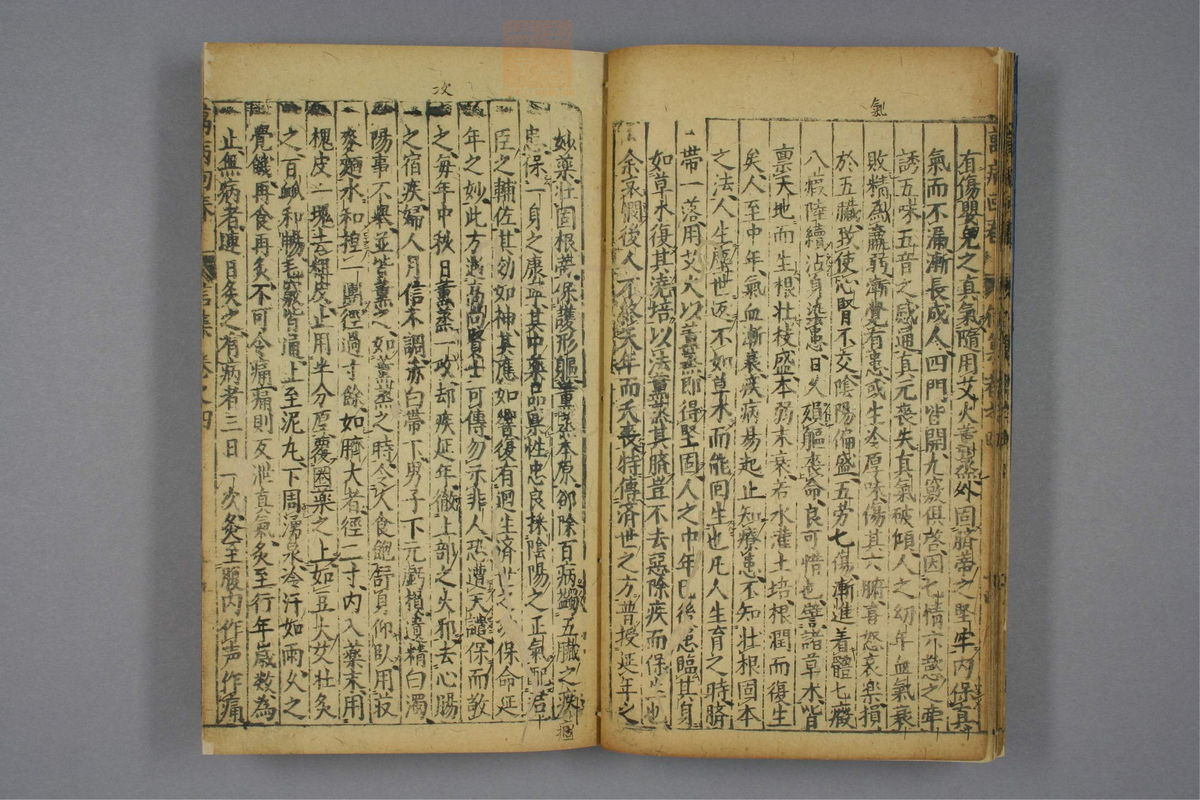 氣
有傷嬰兒之真氣隨用艾火薰蒸外固臍蒂之堅牢內保真
氣而不漏漸長成人四門皆開九竅俱啓因七情六慾之牽
誘五味五音之感通真元喪失真氣破傾人之幼年血氣衰
敗精為羸弱漸覺有患或生冷厚味傷其六腑喜怒哀樂損
於五臟致使心腎不交陰陽偏盛五劳七傷漸進着體七癥
八瘕陸續沾身染患日久殞軀喪命良可惜也譬諸草木皆
禀天地而生根壮枝盛本弱末衰若水灌土培根潤而復生
矣人至中年氣血漸衰疾病易起止知療患不知壮根固本
之法人生歷世不如草木而能回生也凡人生育之時臍
帶一落用艾火以薰蒸即得堅固人之中年已後患臨其身
如草木復其澆培以法薰蒸其臍豈不去惡除疾而保也
余哀憫後人不終天年而夭喪特傳済世之方普授延年之
次
妙藥壮固根蒂保護形軀薰蒸本原却除百病蠲五臟之疾
患保一身之康其中藥品氣性忠良採陰陽之正氣配
臣之輔佐其効如神其應如響復有廻生済世之保命延
年之妙此方遇高賢士可傳勿示非人恐遭天譴保而敬
之每年中秋日薰蒸一次却疾延年徹上部之火邪去心腸
之宿疾婦人月信不調赤白帶下男子下元虧損遺精白濁
陽事不舉並皆薰之如薰蒸之時令人食飽舒身仰臥用莜
麥麵水和揑一團徑過寸餘如臍大者徑二寸內入藥末用
槐皮一塊去粗皮止用半分厚覆圈藥之上如豆大艾壮灸
之百脉和暢毛竅皆通上至泥丸下周湧泉冷汗如雨久之
覺饑再食再灸不可令痛痛則反泄真氣灸至行年歲数為
止無病者連日灸之有病者三日一次灸至腹內作声作痛